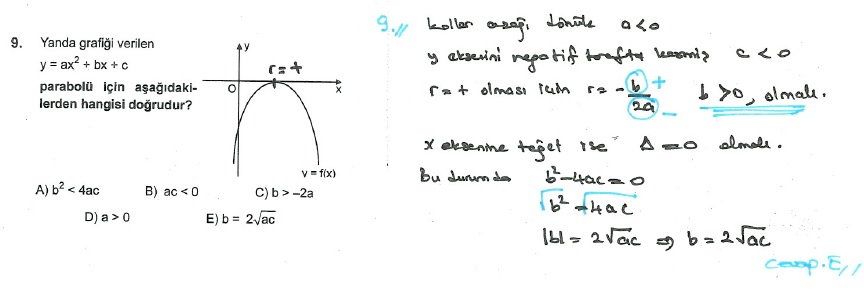 9. Yanda grafiği verilen
y = ax² + bx + c
parabolü için aşağıdaki-
lerden hangisi doğrudur?
y
r = +
O
x
y = f(x)
A) b² < 4ac B) ac < 0 C) b > –2a
D) a > 0 E) b = 2√ac
9.// kollar aşağı dönük a<0
y eksenini negatif tarafta kesmiş c < 0
r = + olması için r = - b/2a + - b > 0, olmalı.
x eksenine teğet ise Δ = 0 olmalı.
Bu durumda b² - 4ac = 0
√b² = √4ac
|b| = 2√ac ⇒ b = 2√ac
cevap. E//